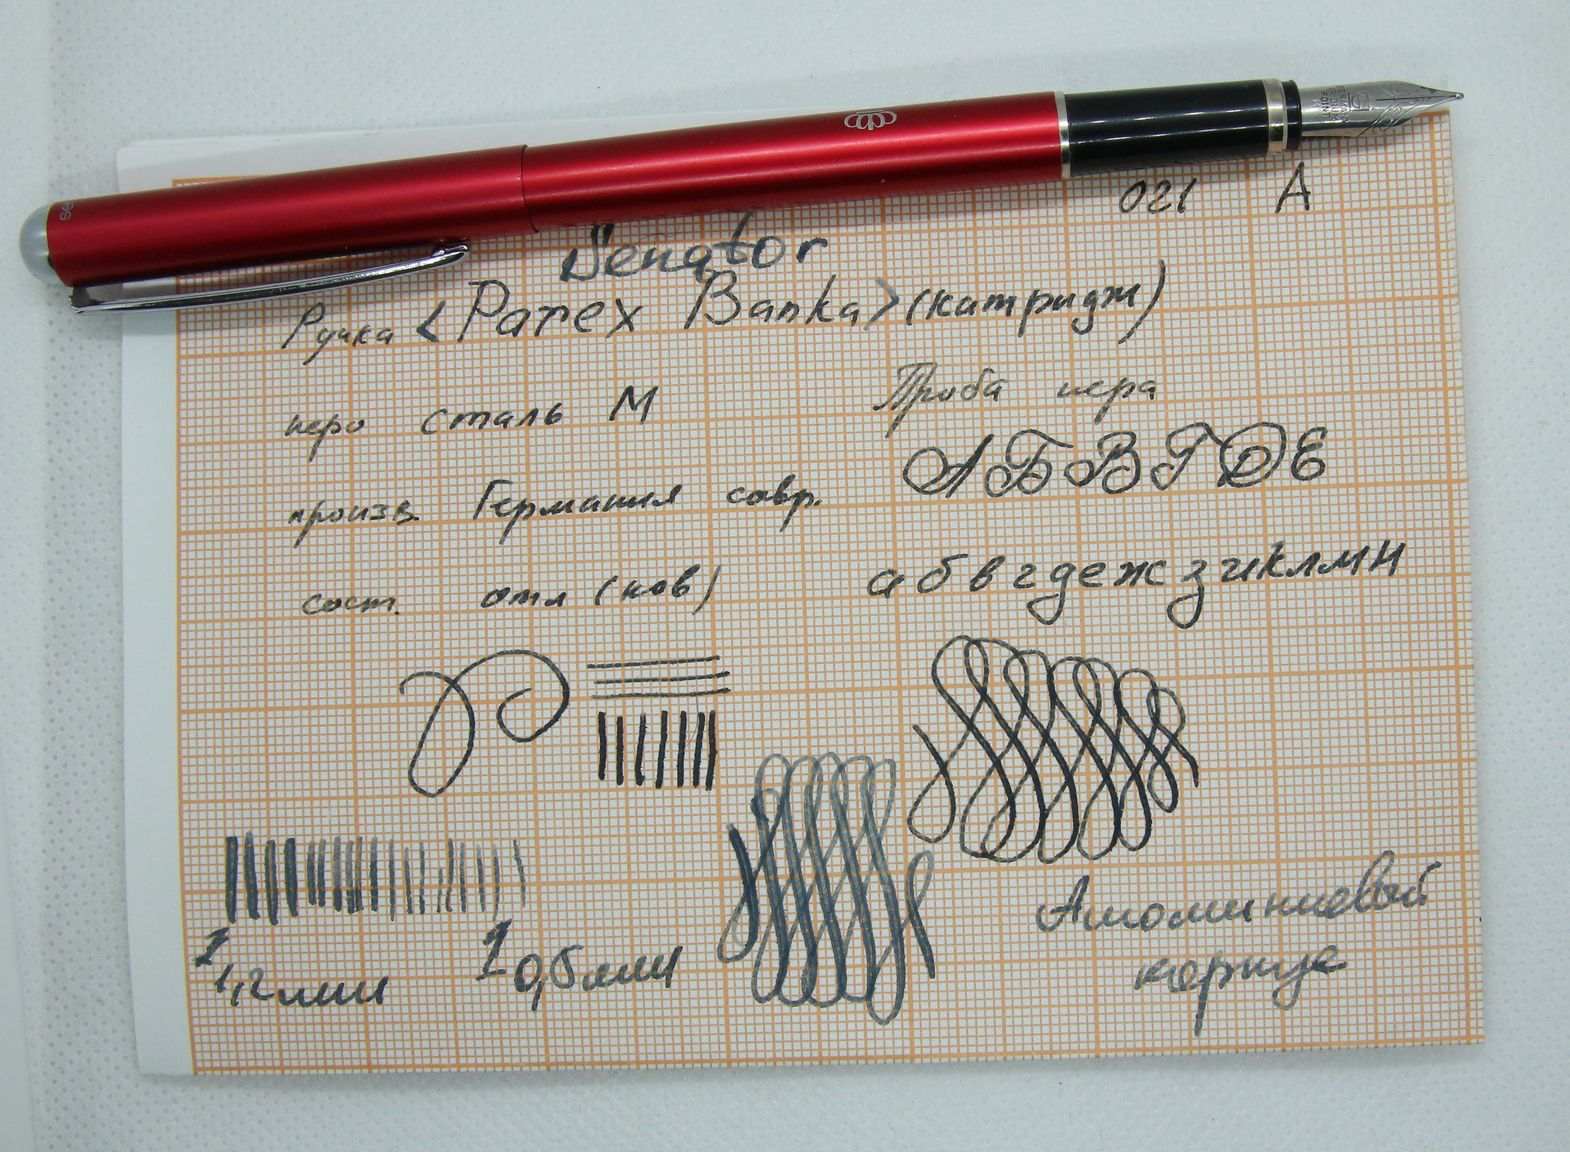 021 А
Senator
Ручка <Parex Banka> (катридж)
перо сталь М
Проба пера
А Б В Г Д Е
произв. Германия совр.
а б в г д е ж з и к л м н
сост. отл (нов)
1,2 мм
0,5 мм
Алюминиевый
корпус